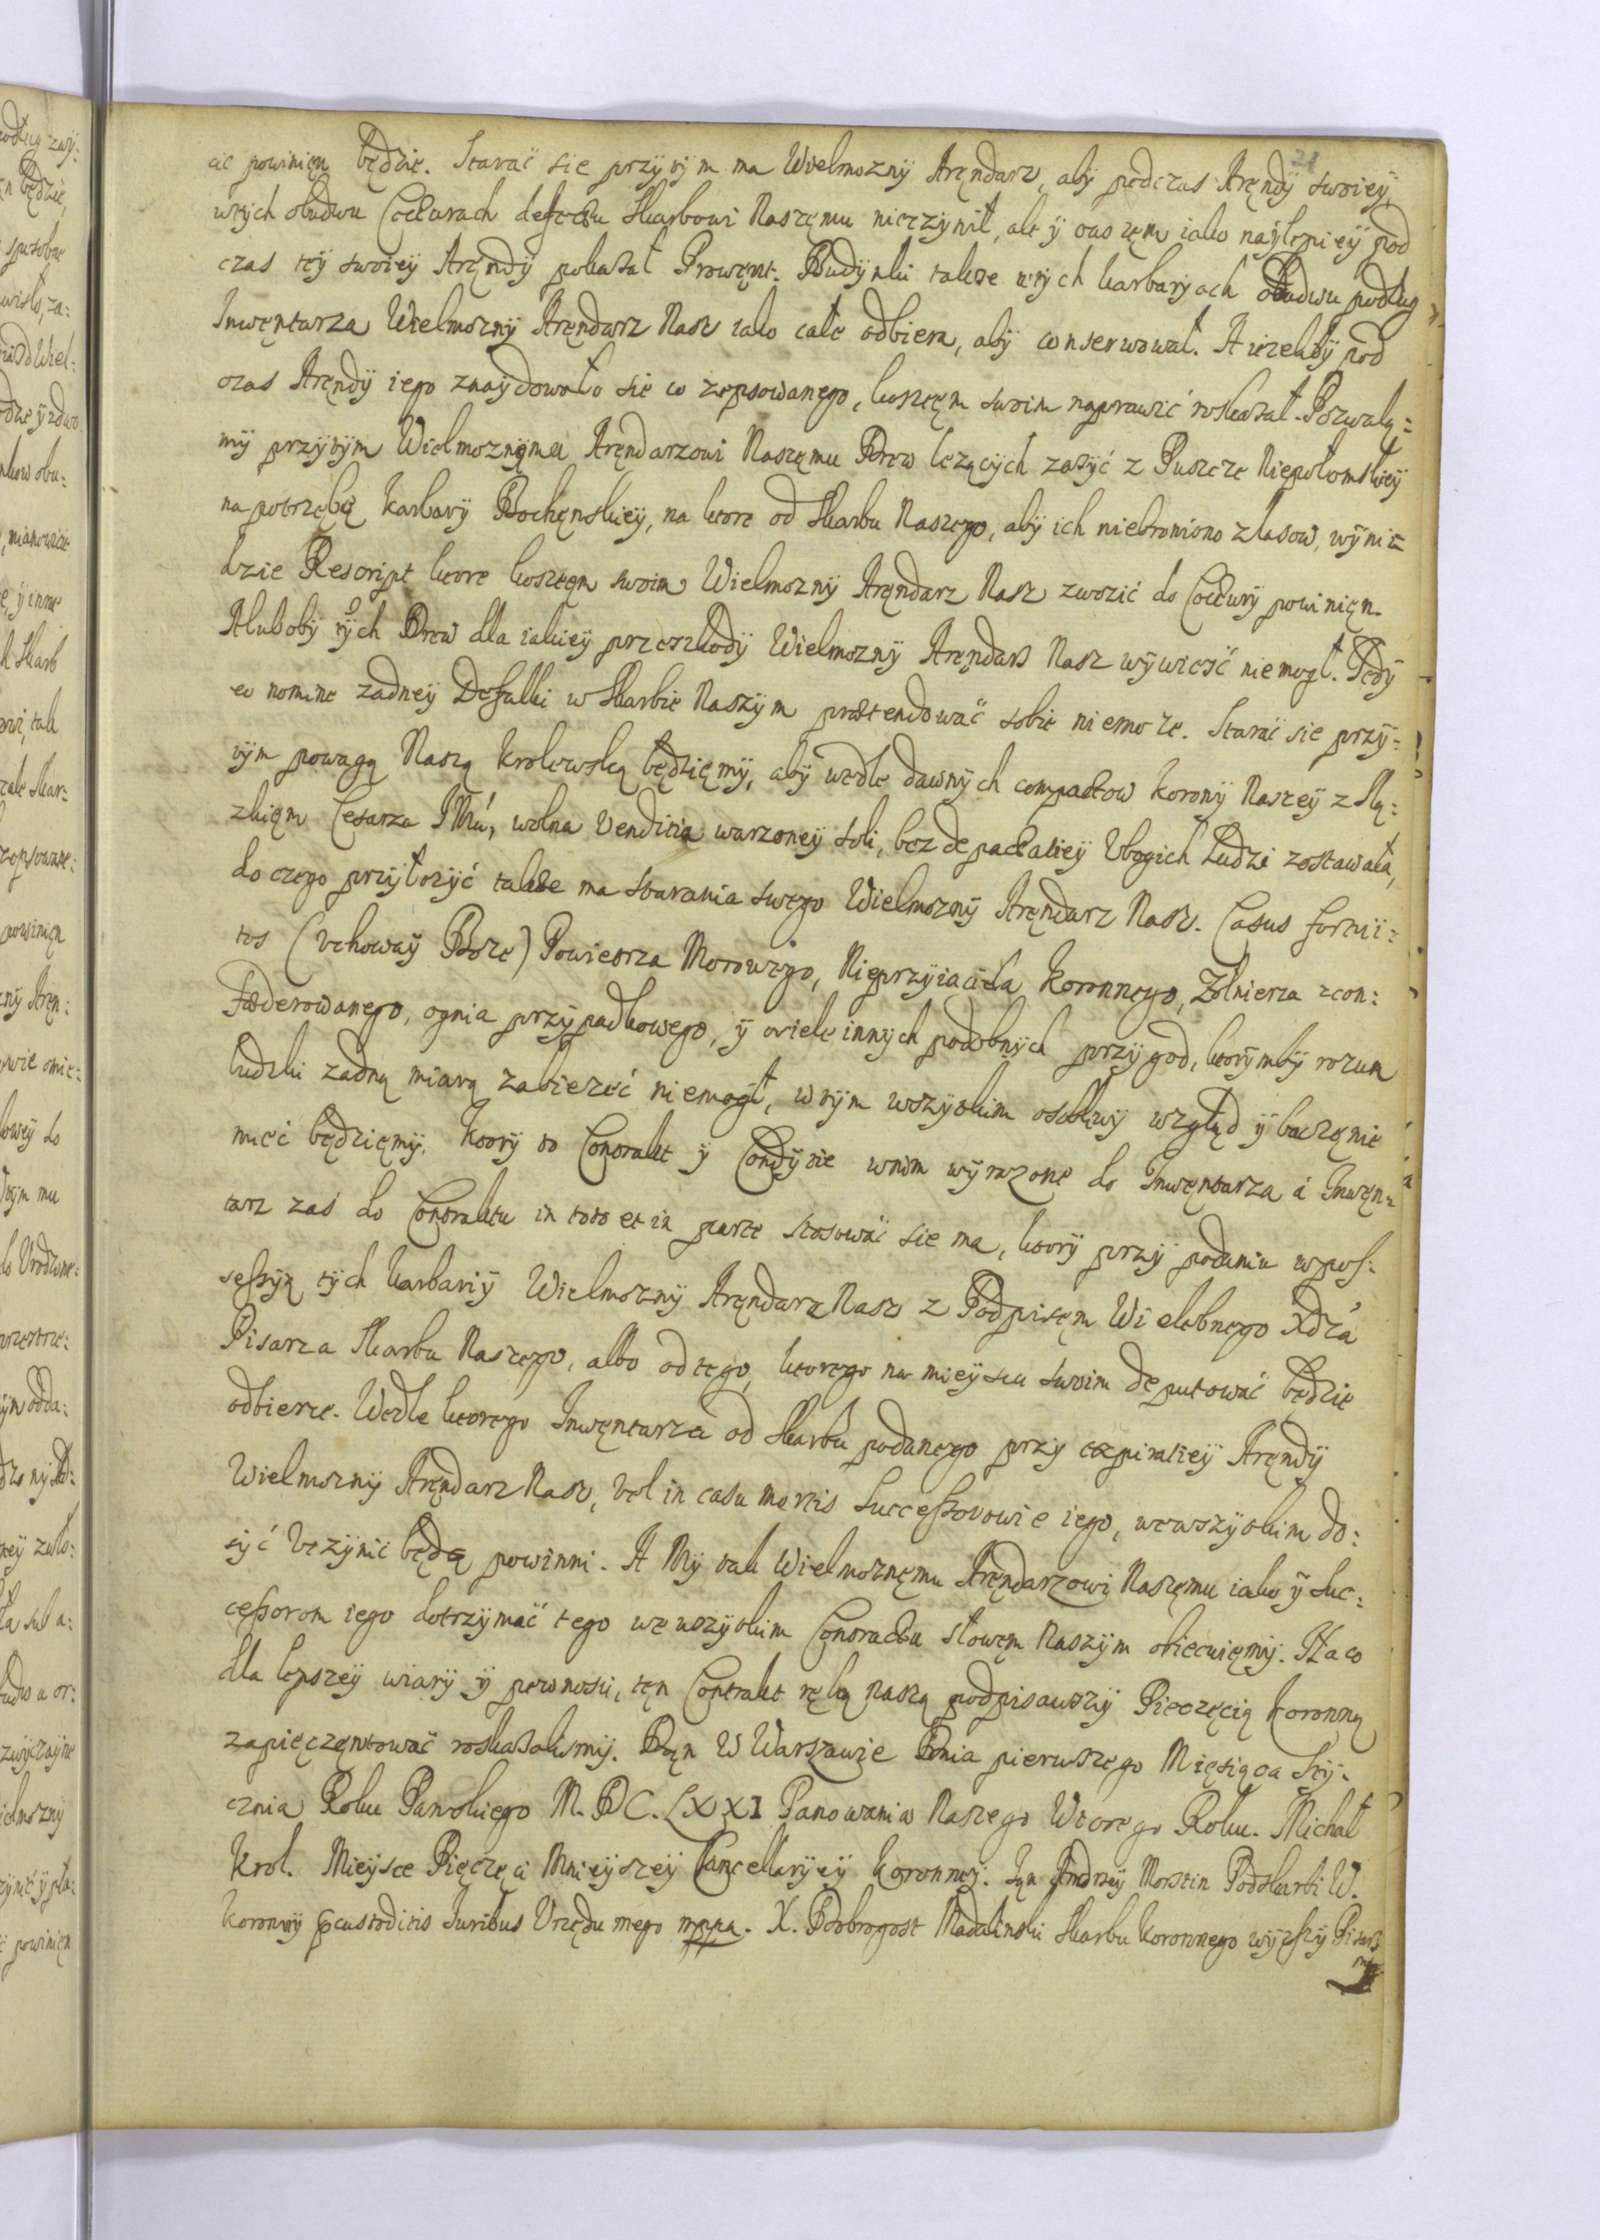 21
ać powinięn będzie. Starać się przÿtÿm ma Wielmoznÿ Aręndarz, abÿ podczas Aręndÿ swoieÿ,
wtÿch obudwu Cocturach defectu Skarbowi Naszęmu nieczÿnił, ale ÿ owszęm iako naÿlepieÿ pod
czas teÿ swoieÿ Aręndÿ pokazał Prowęnt. Budÿnki takze wtÿch karbarÿach obudwu podług
Inwęntarza Wielmoznÿ Aręndarz Nasz iako całe odbiera, abÿ conserwował. A iezelibÿ pod
czas Aręndÿ iego znaÿdowało się co zepsowanego, kosztęm swoim naprawić roskazał. Pozwalą:
mÿ przÿtÿm Wielmoznęmu Aręndarzowi Naszęmu Drew lezących zazÿć z Puszcze Niepołomskieÿ
na potrzębę karbarÿ Bochęnskieÿ, na ktore od Skarbu Naszego, abÿ ich niebroniono z lasow, wÿnie
dzie Rescript ktore kosztęm swoim Wielmoznÿ Aręndarz Nasz zwozić do Coctury powinięn.
Alubobÿ tÿch Drew dla iakieÿ przeszkodÿ Wielmoznÿ Aręndarz Nasz wÿwieść niemogł. Tedÿ
eo nomine zadneÿ Defalki w Skarbie Naszÿm prætendować sobie niemoze. Starać się przÿ:
tÿm powagą Naszą krolewską będzięmÿ, abÿ wedle dawnÿch compactow koronÿ Naszeÿ z Slą:
zkięm Cesarza JMci, wolna venditia warzoneÿ soli, bez depactatieÿ Vbogich Ludzi zostawała,
do czego przÿłozÿć takze ma starania swego Wielmoznÿ Aręndarz Nasz. Casus fortui:
tos (vchowaÿ Boze) Powietrza Morowego, Nieprzÿiaciela koronnego, Zołnierza zcon:
fœderowanego, ognia przÿpadkowego, ÿ owiele innÿch podobnÿch przÿgod, ktorÿmbÿ rozum
ludzki zadną miarą zabiezeć niemogł, wtÿm wszÿtkim osobliwÿ wzgląd ÿ baczęnie
mieć będzięmÿ. ktorÿ to Contrakt ÿ Condÿtie wnim wÿrazone do Inwęntarza á Inwęn:
tarz zaś do Contraktu in toto et in parte stosować się ma, ktorÿ przÿ podaniu wpos:
sessÿą tÿch karbariÿ Wielmoznÿ Aręndarz Nasz z Podpisęm Wielebnego Xdza
Pisarza Skarbu Naszego, albo od tego, ktorego na mieÿscu swoim deputować będzie
odbierze. Wedle ktorego Inwęntarza od Skarbu podanego przÿ expiratieÿ Aręndÿ
Wielmoznÿ Aręndarz Nasz, vel in casu mortis Successorowie iego, wewszÿtkim do:
sÿć vczÿnić będą powinni. A Mÿ tak Wielmoznęmu Aręndarzowi Naszęmu iako ÿ Suc:
cessorom iego dotrzÿmać tego wewszÿtkim Contractu słowęm Naszÿm obiecuięmÿ. Na co
dla lepszeÿ wiarÿ ÿ pewnosci, tęn Contrakt ręką naszą podpisawszÿ Pieczęcią koronną
zapięczęntować roskazalismÿ. Dan W Warszawie Dnia pierwszego Miesiąca Stÿ:
cznia Roku Panskiego M. DC. LXXI Panowania Naszego Wtorego Roku. Michał
krol. Mieÿsce Pięczęci Mnieÿszeÿ Cancellarÿeÿ koronneÿ. Jan Andrzeÿ Morstin Podskarbi W.
koronnÿ custoditis Juribus Vrzędu mego mppa. X. Dobrogost Madalinski Skarbu koronnego wÿzszÿ Pisarz
mp